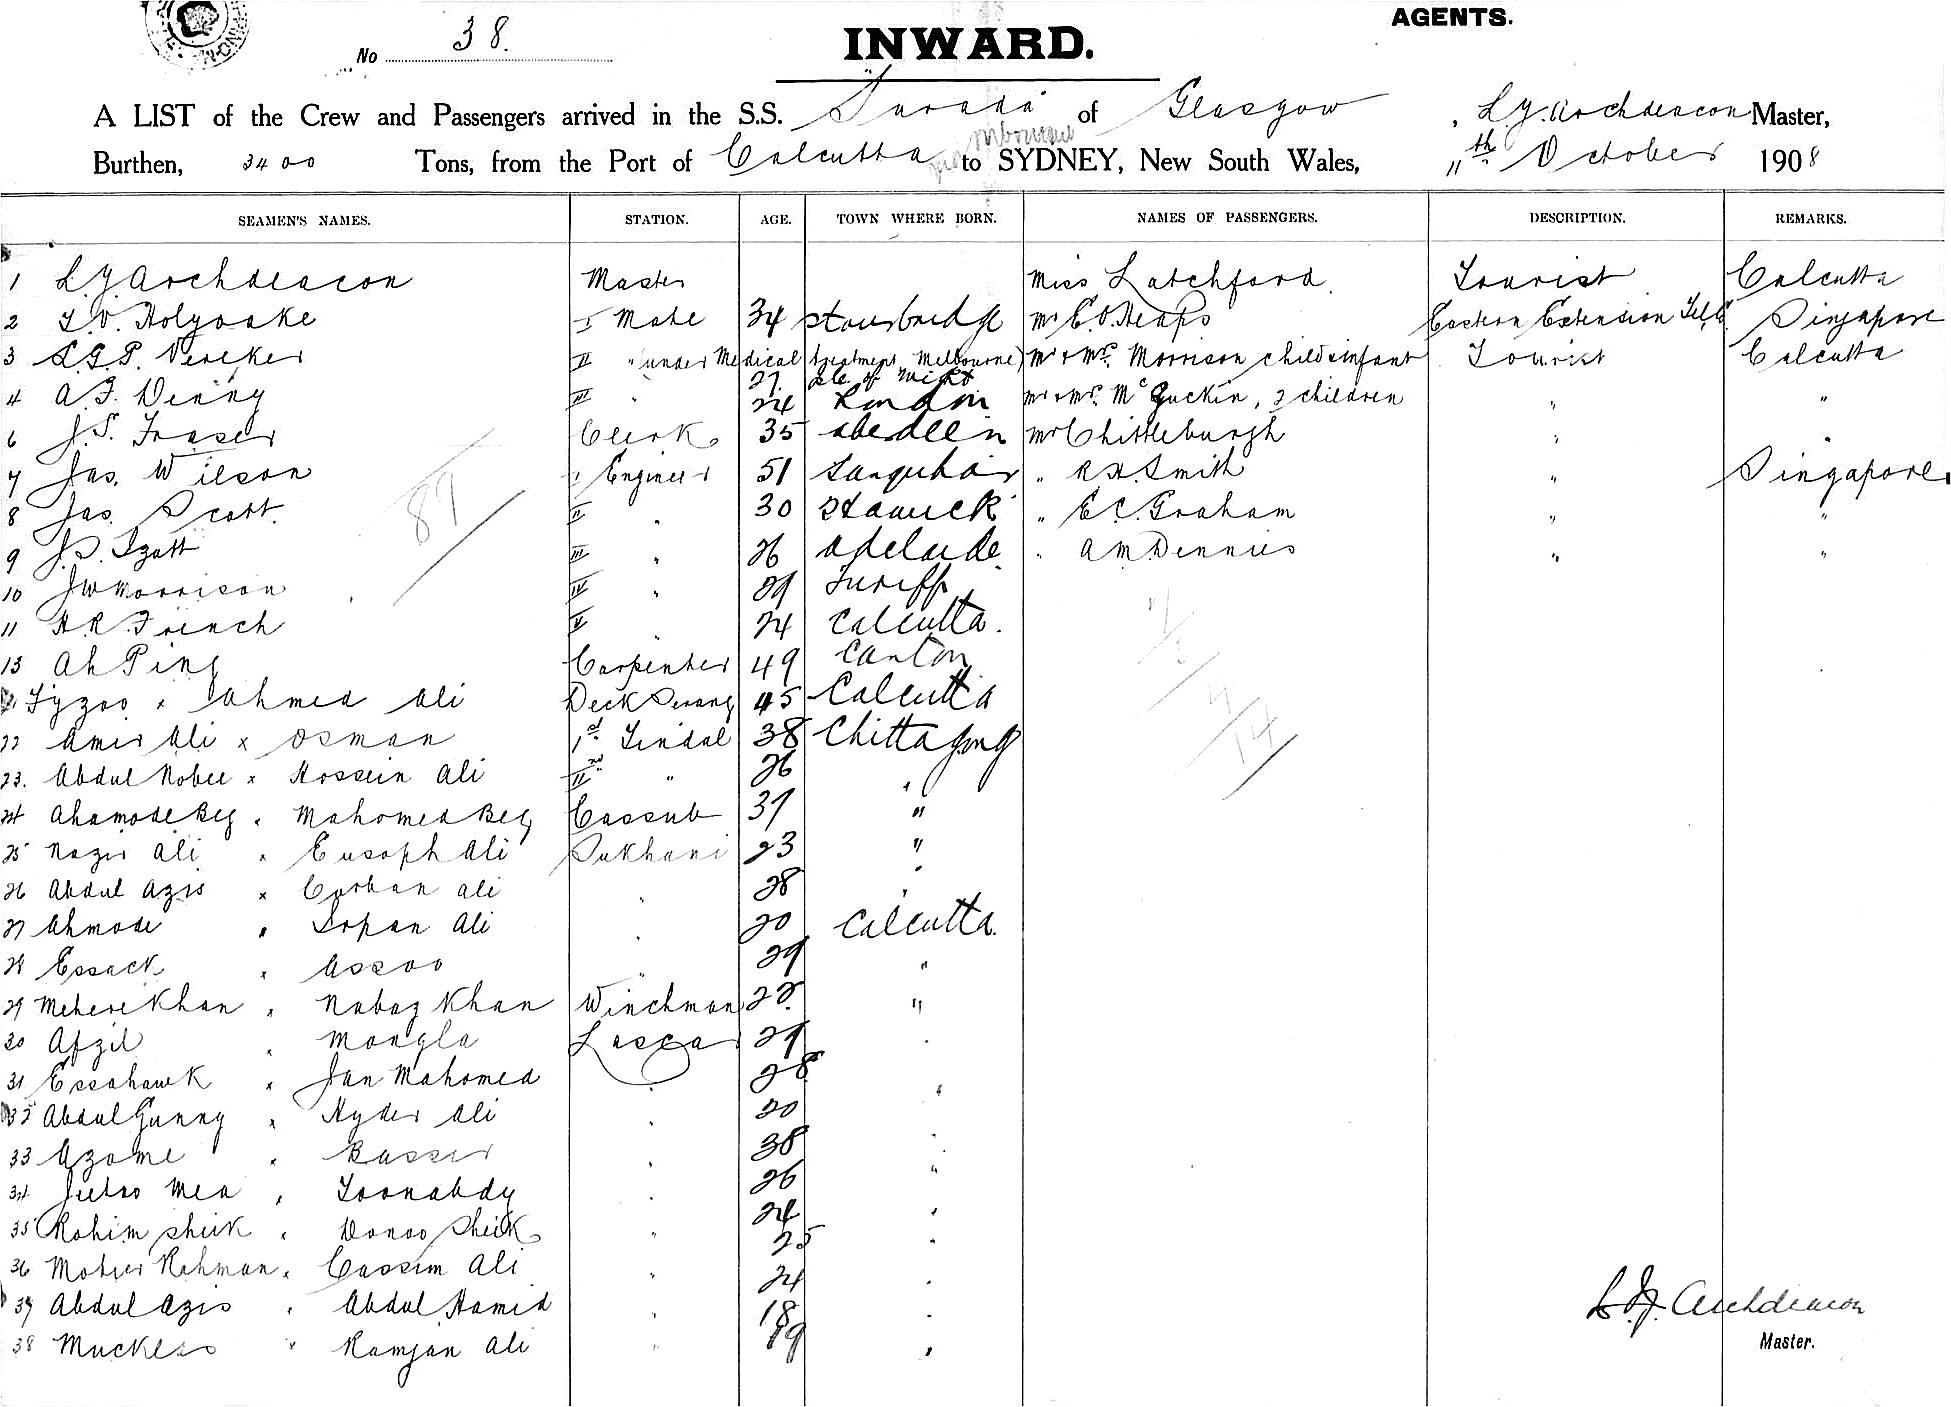 AGENTS.
No 38.
INWARD.
A LIST of the Crew and Passengers arrived in the S.S. Surada of Glasgow, L.J. Archdeacon Master,
Burthen, 3400 Tons, from the Port of Calcutta to SYDNEY, New South Wales, 11th October 1908
SEAMEN'S NAMES. STATION. AGE. TOWN WHERE BORN. NAMES OF PASSENGERS. DESCRIPTION. REMARKS.
1 L J Archdeacon Master Miss Latchford. Tourist Calcutta
2 Holyoake I Mate 34 Stourbridge Mr E.O. Heaps Eastern Extension Singapore
3 Vereker II " (under Medical treatment Melbourne) Mr & Mrs Morrison child & infant Tourist Calcutta
27 Isle of Wight
4 A.F. Denny III " 24 London Mr & Mrs McGuckin, 2 children " "
6 J.S. Fraser Clerk 35 Aberdeen Mr Chittleburgh " "
7 Jas. Wilson 1 Engineer 51 Sanquhar " R.H. Smith " Singapore
8 Jas. Scott. II " 30 " E.C. Graham " "
9 J.S. Izatt III " 26 Adelaide " A.M. Dennis " "
10 J W Morrison IV " 29 Turiff
11 H.R. French V " 24 Calcutta.
13 Ah Ping Carpenter 49 Canton
Fyzoo x Ahmed Ali Deck Serang 45 Calcutta
22 Amir Ali x Osman 1st Tindal 38 Chittagong
23. Abdul Nobee x Hossein Ali IInd " 26 "
24 Ahamode Beg x Mahomed Beg Cassub 37 "
25 Nazir Ali x Eusoph Ali Sukhani 23 "
26 Abdul Azis x Corban Ali " 28 "
27 Ahmode x Topan Ali " 20 Calcutta.
28 Essack x Assoo " 29 "
29 Mehere Khan x Nabaz Khan Winchman 22. "
30 Afzil x Mongla Lascar 29 "
31 Essahawk x Jan Mahomed " 28 "
32 Abdul Gunny x Hyder Ali " 20 "
33 Azome x Basser " 38 "
34 Mea x Toonabdy " 26 "
35 Rohim Sheik x Donoo Sheik " 24 "
25
36 Rahman x Cassim Ali " 24 "
37 Abdul Azis x Abdul Hamid " 18 "
38 x Ramjan Ali " 19 "
87
L.J. Archdeacon
Master.